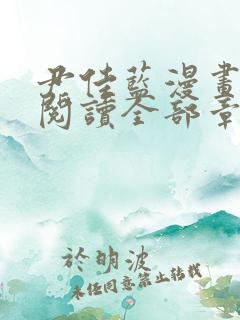 尹佳藍漫畫
閱讀全部章
於明波
未经同意禁止转载